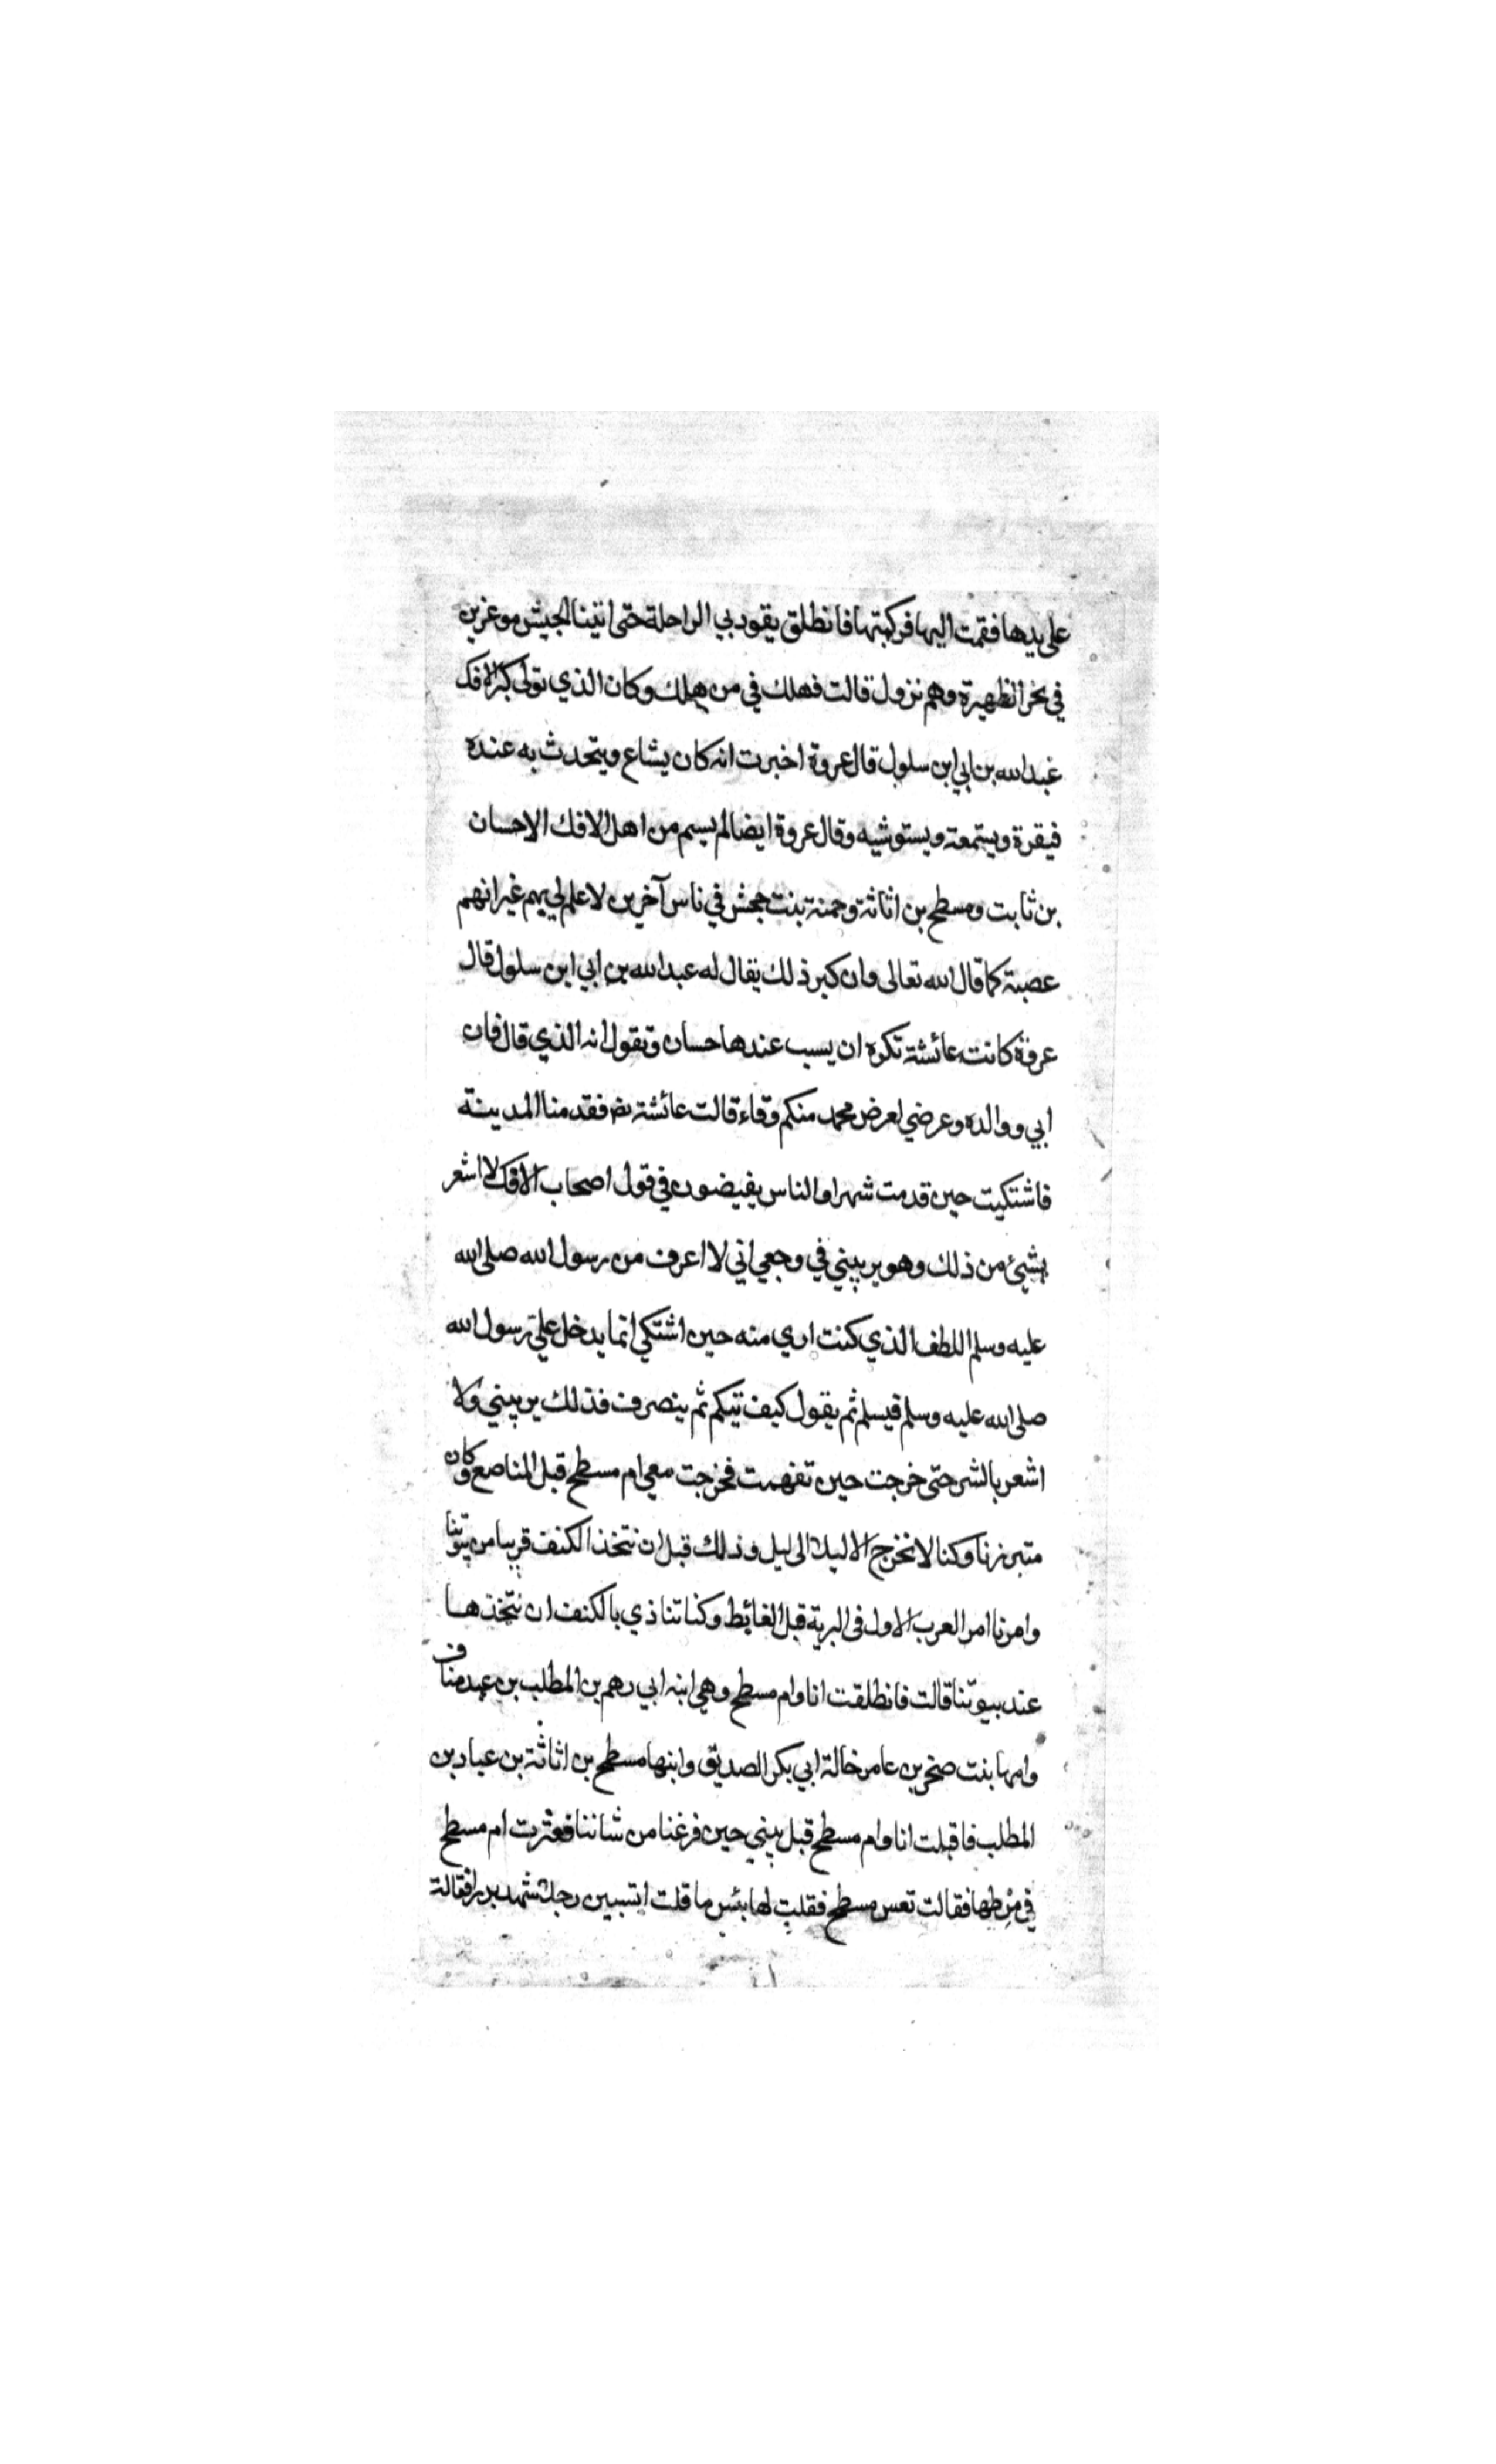 على يدها فقمت اليها فركبتها فانطلق يقود بي الراحلة حتى اتينا الجيش موغرين
في نحر الظهيرة وهم نزول قالت فهلك في من هلك وكان الذي تولى كبر الافك
عبد الله بن ابي ابن سلول قال عروة اخبرت انه كان يشاع ويتحدث به عنده
فيقرة ويستمعه ويستوشيه وقال عروة ايضا لم يسم من اهل الافك الاحسان
بن ثابت ومسطح بن اثاثة وحمنة بنت جحش في ناس آخرين لا علم لي بهم غير انهم
عصبة كما قال الله تعالى وان كبر ذلك يقال له عبد الله بن ابي ابن سلول قال
عروة كانت عائشة تكره ان يسب عندها حسان وتقول انه الذي قال فان
ابي ووالده وعرضي لعرض محمد منكم وقاء قالت عائشة رض فقدمنا المدينة
فاشتكيت حين قدمت شهرا والناس يفيضون في قول اصحاب الافك لا اشعر
بشئ من ذلك وهو يريبني في وجعي اني لا اعرف من رسول الله صلى الله
عليه وسلم اللطف الذي كنت اري منه حين اشتكي انما يدخل علي رسول الله
صلى الله عليه وسلم فيسلم ثم يقول كيف تيكم ثم ينصرف فذلك يريبني ولا
اشعر بالشر حتى خرجت حين تفهمت فخرجت معي ام مسطح قبل المناصع وكان
متبرزنا وكنا لا نخرج الا ليلا الى ليل وذلك قبل ان نتخذ الكنف قريبا من بيوتنا
وامرنا امر العرب الاول في البرية قبل الغائط وكنا نتاذي بالكنف ان نتخذها
عند بيوتنا قالت فانطلقت انا وام مسطح وهي ابنه ابي رهم بن المطلب بن عبد مناف
وامها بنت صخر بن عامر خالة ابي بكر الصديق وابنها مسطح بن اثاثة بن عباد بن
المطلب فاقبلت انا وام مسطح قبل بيتي حين فرغنا من شاننا فعثرت ام مسطح
في مرطها فقالت تعس مسطح فقلت لها بئس ما قلت اتسبين رجلا شهد بدرا فقالة